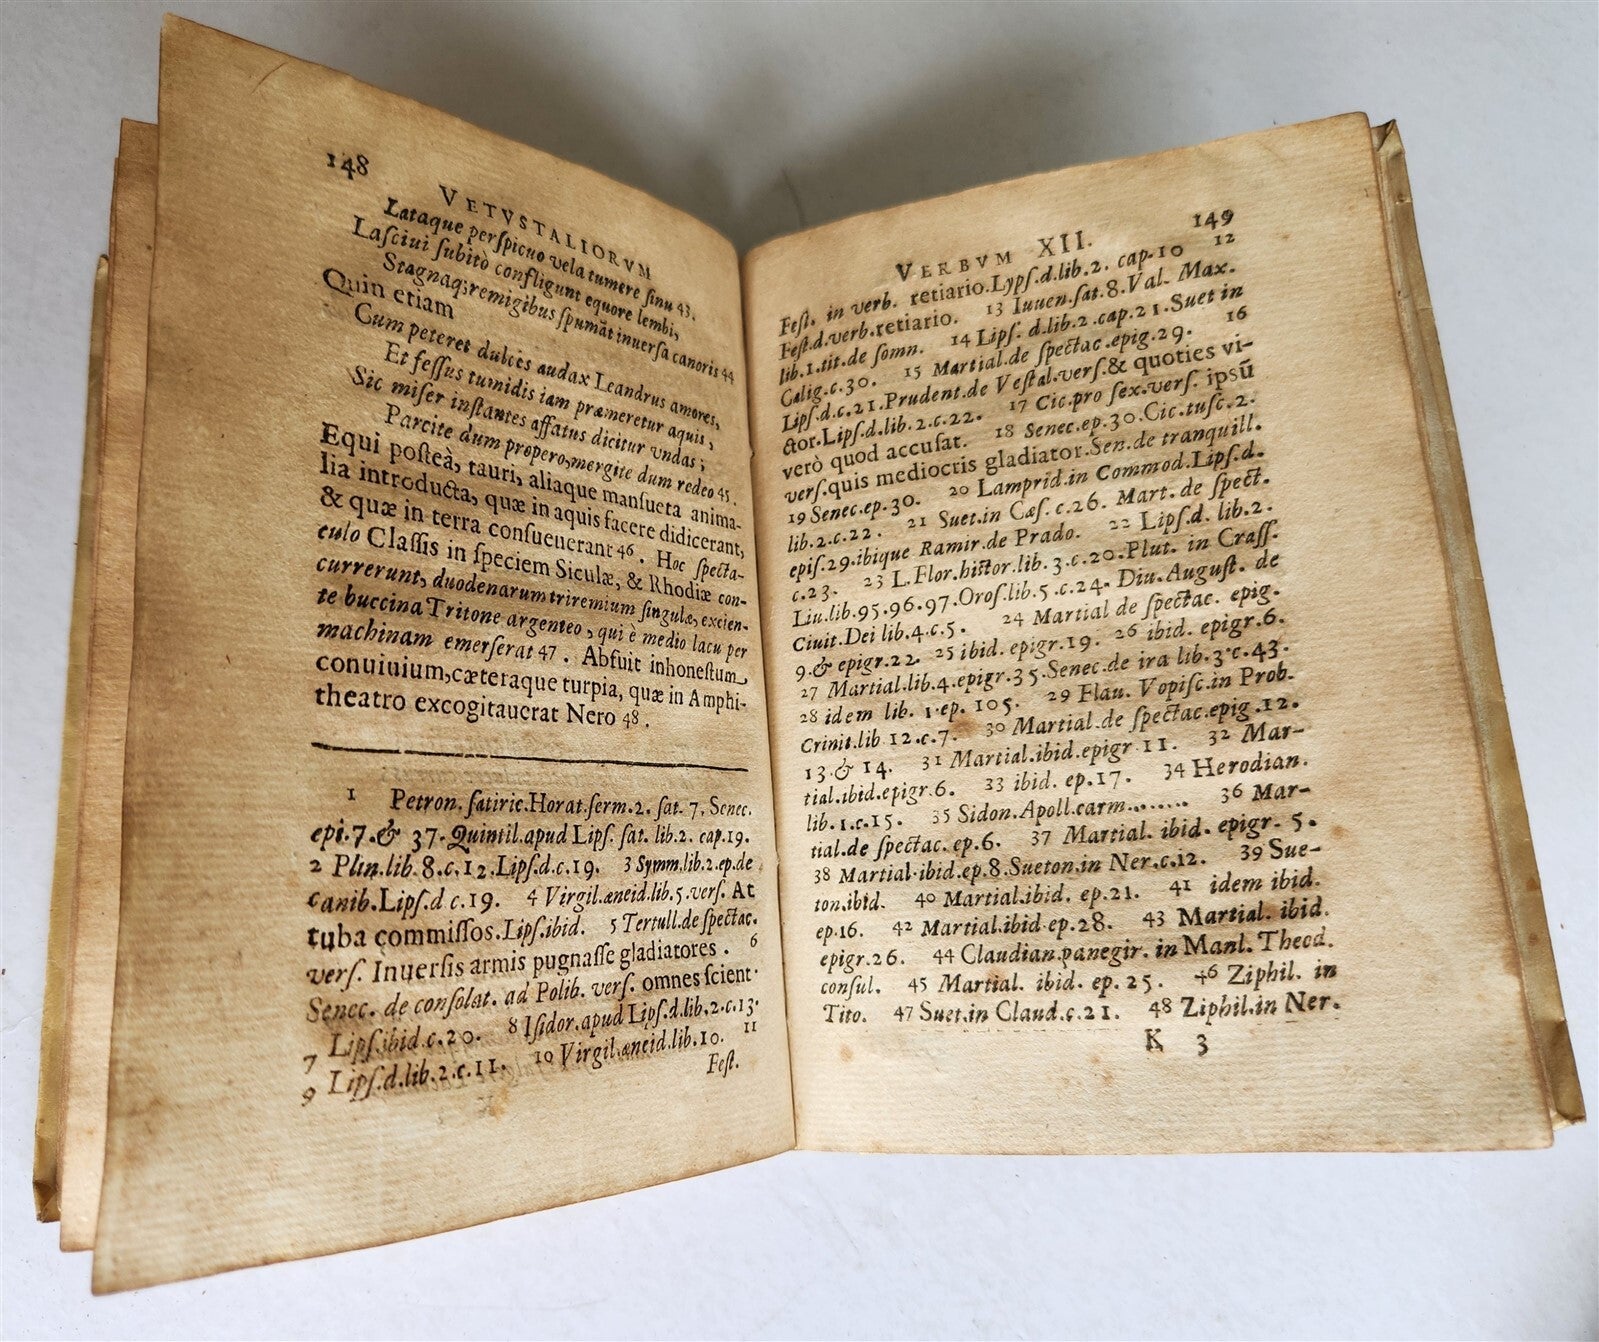 148
VETVSTALIORVM
Lataque perſpicuo vela tumere ſinu 43.
Laſciui ſubitò confligunt equore lembi,
Stagnaq; remigibus ſpumãt inuerſa canoris 44
Quin etiam
Cum peteret dulces audax Leandrus amores,
Et feſſus tumidis iam præmeretur aquis,
Sic miſer inſtantes affatus dicitur vndas;
Parcite dum propero, mergite dum redeo 45.
Equi poſteà, tauri, aliaque manſueta anima-
lia introducta, quæ in aquis facere didicerant,
& quæ in terra conſueuerant 46. Hoc ſpecta-
culo Claſſis in ſpeciem Siculæ, & Rhodiæ con-
currerunt, duodenarum triremium ſingulæ, excien-
te buccina Tritone argenteo, qui è medio lacu per
machinam emerſerat 47. Abfuit inhoneſtum
conuiuium, cæteraque turpia, quæ in Amphi-
theatro excogitauerat Nero 48.
1 Petron. ſatiric. Horat. ſerm. 2. ſat. 7, Senec.
epi. 7. & 37. Quintil. apud Lipſ. ſat. lib. 2. cap. 19.
2 Plin. lib. 8. c. 12. Lipſ. d. c. 19. 3 Symm. lib. 2. ep. de
canib. Lipſ. d c. 19. 4 Virgil. æneid. lib. 5. verſ. At
tuba commiſſos. Lipſ. ibid. 5 Tertull. de ſpectac.
verſ. Inuerſis armis pugnaſſe gladiatores. 6
Senec. de conſolat. ad Polib. verſ. omnes ſcient.
7 Lipſ. ibid. c. 20. 8 Iſidor. apud Lipſ. d. lib. 2. c. 13.
9 Lipſ. d. lib. 2. c. 11. 10 Virgil. æneid. lib. 10. 11
Feſt.
VERBVM XII. 149
Feſt. in verb. retiario. Lypſ. d. lib. 2. cap. 10 12
Feſt. d. verb. retiario. 13 Iuuen. ſat. 8. Val. Max.
lib. 1. tit. de ſomn. 14 Lipſ. d. lib. 2. cap. 21. Suet in
Calig. c. 30. 15 Martial. de ſpectac. epig. 29. 16
Lipſ. d. c. 21. Prudent. de Veſtal. verſ. & quoties vi-
ctor. Lipſ. d. lib. 2. c. 22. 17 Cic. pro ſex. verſ. ipsũ
verò quod accuſat. 18 Senec. ep. 30. Cic. tuſc. 2.
verſ. quis mediocris gladiator. Sen. de tranquill.
19 Senec. ep. 30. 20 Lamprid. in Commod. Lipſ. d.
lib. 2. c. 22. 21 Suet. in Cæſ. c. 26. Mart. de ſpect.
epiſ. 29. ibique Ramir. de Prado. 22 Lipſ. d. lib. 2.
c. 23. 23 L. Flor. hiſtor. lib. 3. c. 20. Plut. in Craſſ.
Liu. lib. 95. 96. 97. Oroſ. lib. 5. c. 24. Diu. Auguſt. de
Ciuit. Dei lib. 4. c. 5. 24 Martial de ſpectac. epig.
9. & epigr. 22. 25 ibid. epigr. 19. 26 ibid. epigr. 6.
27 Martial. lib. 4. epigr. 35. Senec. de ira lib. 3. c. 43.
28 idem lib. 1. ep. 105. 29 Flau. Vopiſc. in Prob.
Crinit. lib 12. c. 7. 30 Martial. de ſpectac. epig. 12.
13. & 14. 31 Martial. ibid. epigr 11. 32 Mar-
tial. ibid. epigr. 6. 33 ibid. ep. 17. 34 Herodian.
lib. 1. c. 15. 35 Sidon. Apoll. carm........ 36 Mar-
tial. de ſpectac. ep. 6. 37 Martial. ibid. epigr. 5.
38 Martial. ibid. ep. 8. Sueton. in Ner. c. 12. 39 Sue-
ton. ibid. 40 Martial. ibid. ep. 21. 41 idem ibid.
ep. 16. 42 Martial. ibid. ep. 28. 43 Martial. ibid.
epigr. 26. 44 Claudian. panegir. in Manl. Theod.
conſul. 45 Martial. ibid. ep. 25. 46 Ziphil. in
Tito. 47 Suet. in Claud. c. 21. 48 Ziphil. in Ner.
K 3